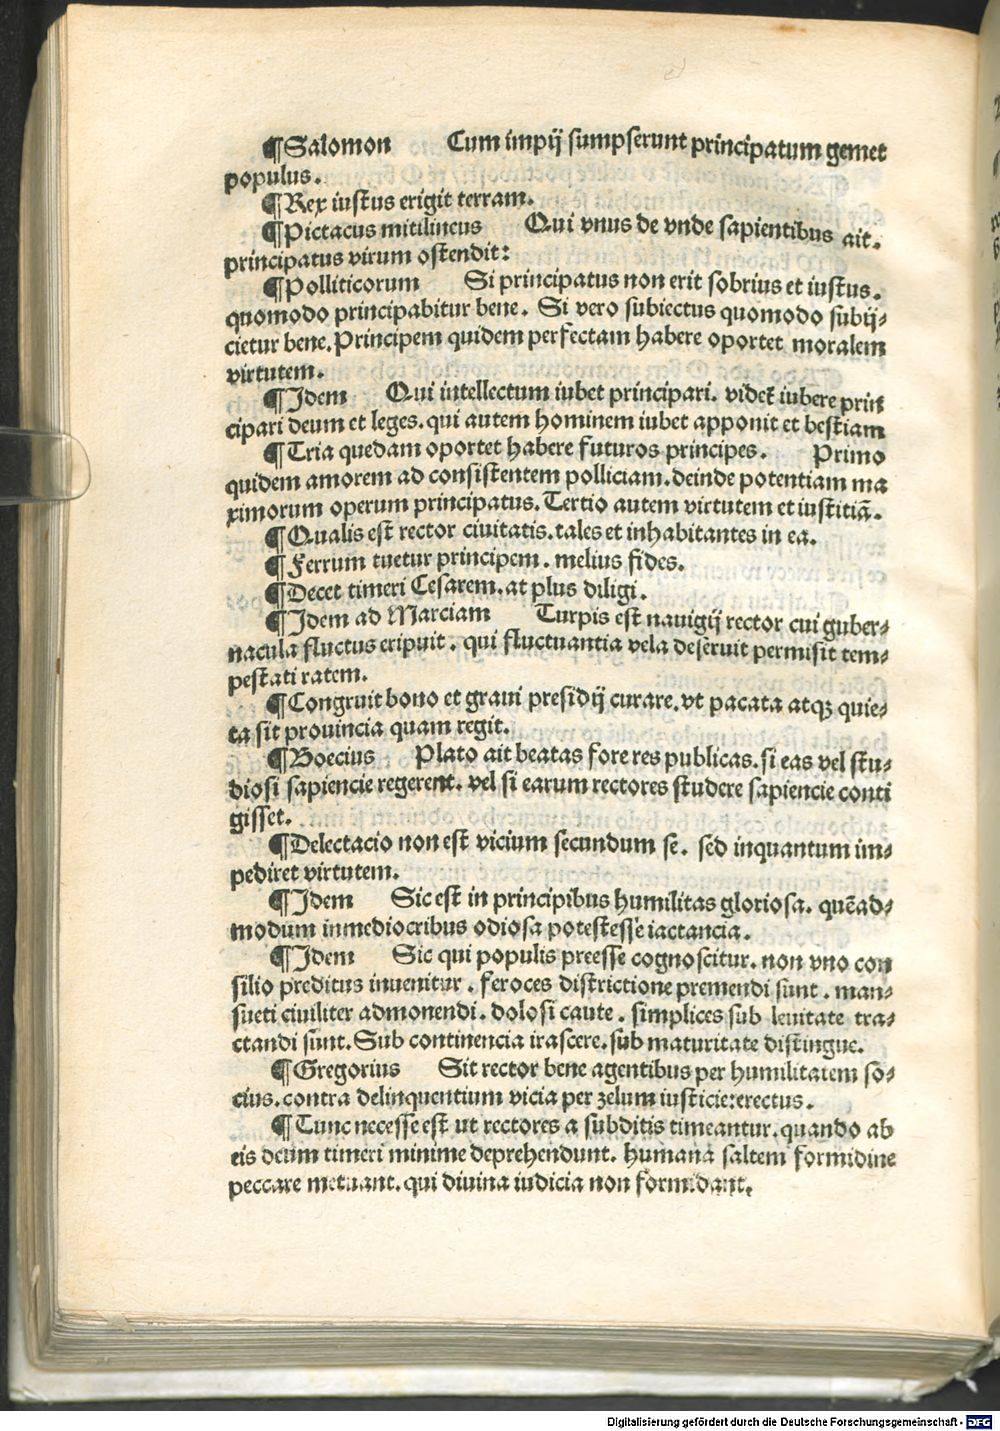 ¶Salomon Cum impij sumpserunt principatum gemet
populus.
¶Rex iustus erigit terram.
¶Pictacus mitilineus Qui vnus de vnde sapientibus ait.
principatus virum ostendit:
¶Polliticorum Si principatus non erit sobrius et iustus.
quomodo principabitur bene. Si vero subiectus quomodo subij⸗
cietur bene. Principem quidem perfectam habere oportet moralem
virtutem.
¶Idem Qui intellectum iubet principari. videt̄ iubere prin
cipari deum et leges. qui autem hominem iubet apponit et bestiam
¶Tria quedam oportet habere futuros principes. Primo
quidem amorem ad consistentem polliciam. deinde potentiam ma
ximorum operum principatus. Tertio autem virtutem et iustitiā.
¶Qualis est rector ciuitatis. tales et inhabitantes in ea.
¶Ferrum tuetur principem. melius fides.
¶Decet timeri Cesarem. at plus diligi.
¶Idem ad Marciam Turpis est nauigij rector cui guber⸗
nacula fluctus eripuit. qui fluctuantia vela deseruit permisit tem⸗
pestati ratem.
¶Congruit bono et graui presidij curare. vt pacata atqꝫ quie⸗
ta sit prouincia quam regit.
¶Boecius Plato ait beatas fore res publicas. si eas vel stu⸗
diosi sapiencie regerent. vel si earum rectores studere sapiencie conti
gisset.
¶Delectacio non est vicium secundum se. sed inquantum im⸗
pediret virtutem.
¶Idem Sic est in principibus humilitas gloriosa. quēad⸗
modum inmediocribus odiosa potestesse iactancia.
¶Idem Sic qui populis preesse cognoscitur. non vno con
silio preditus inuenitur. feroces districtione premendi sunt. man⸗
sueti ciuiliter admonendi. dolosi caute. simplices sub leuitate tra⸗
ctandi sunt. Sub continencia irascere. sub maturitate distingue.
¶Gregorius Sit rector bene agentibus per humilitatem so⸗
cius. contra delinquentium vicia per zelum iusticie: erectus.
¶Tunc necesse est ut rectores a subditis timeantur. quando ab
eis deum timeri minime deprehendunt. humana saltem formidine
peccare metuant. qui diuina iudicia non formidant.
Digitalisierung gefördert durch die Deutsche Forschungsgemeinschaft - DFG